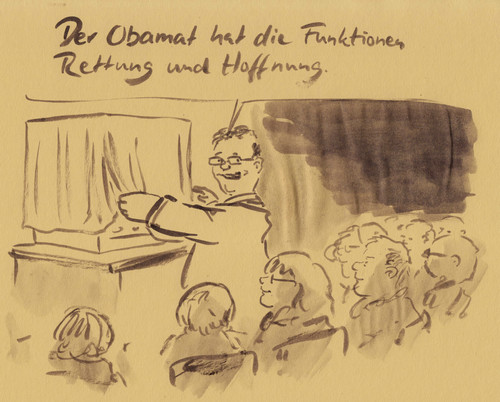 Der Obamat hat die Funktionen
Rettung und Hoffnung.